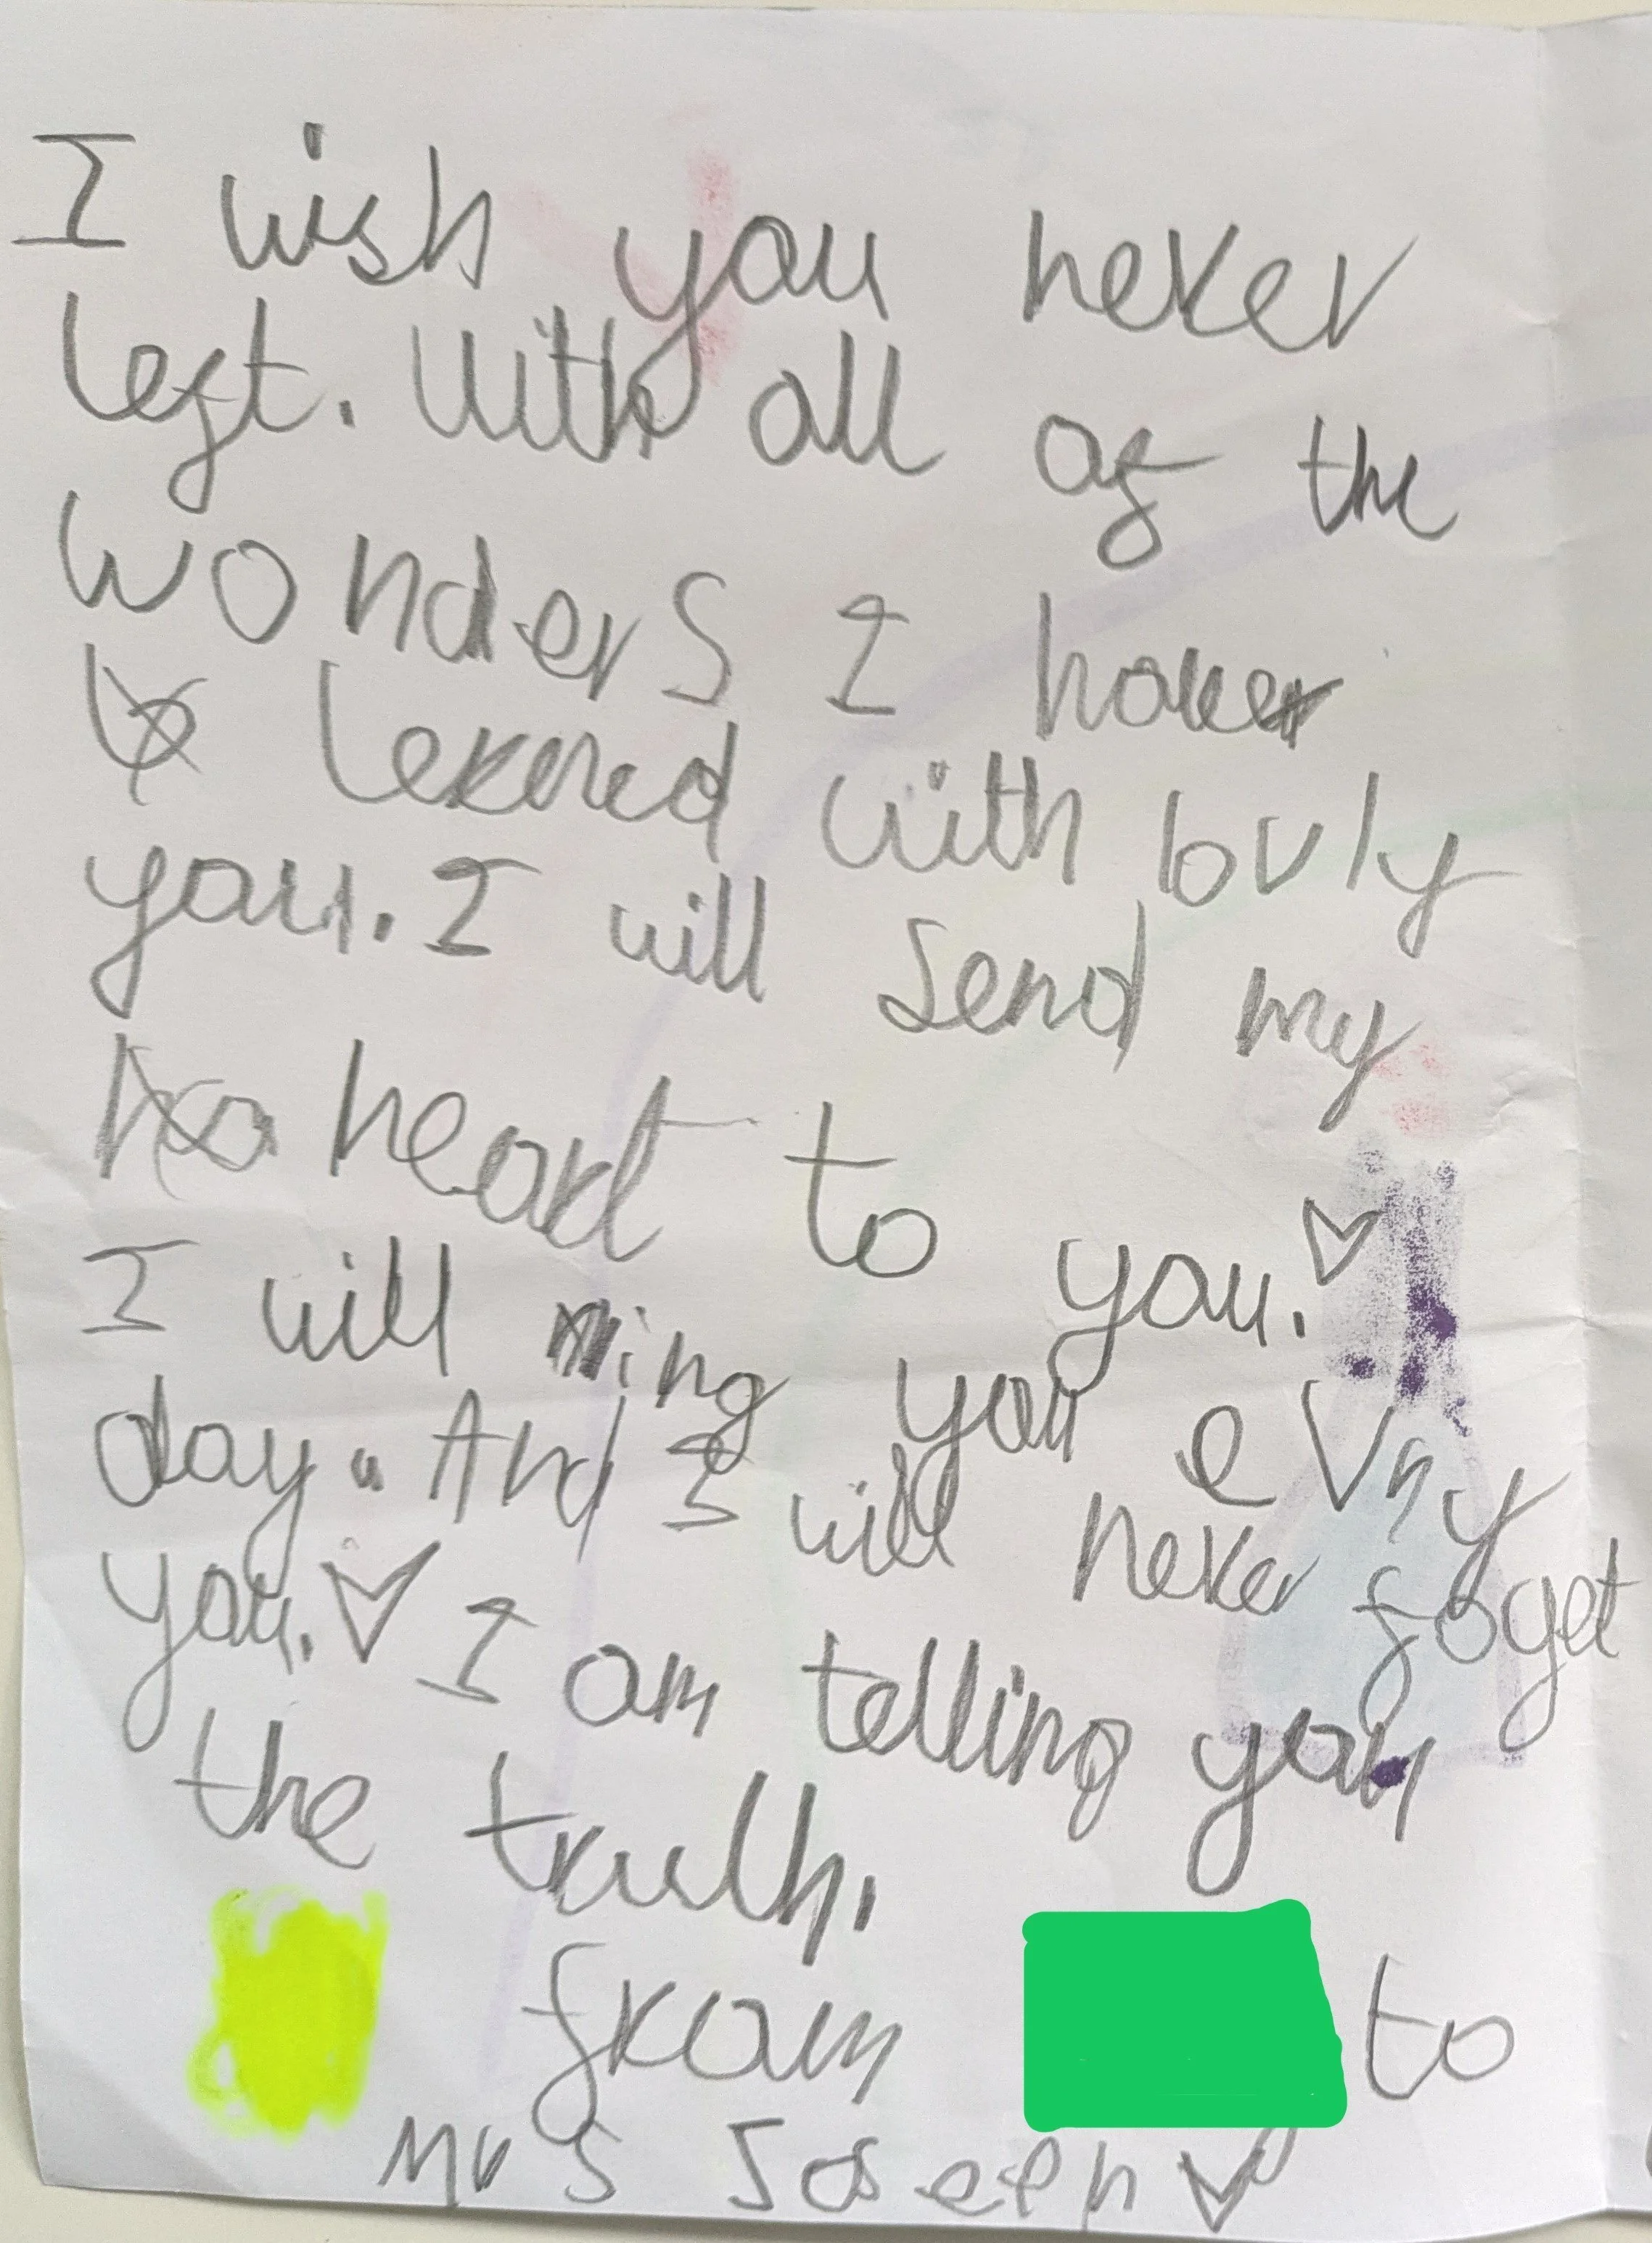 I wish you never
left. With all of the
wonders I have
lerned with lovly
you. I will send my
heart to you.
I will ring you evry
day. And I will never foget
you. I am telling you
the truth.
from to
Mrs